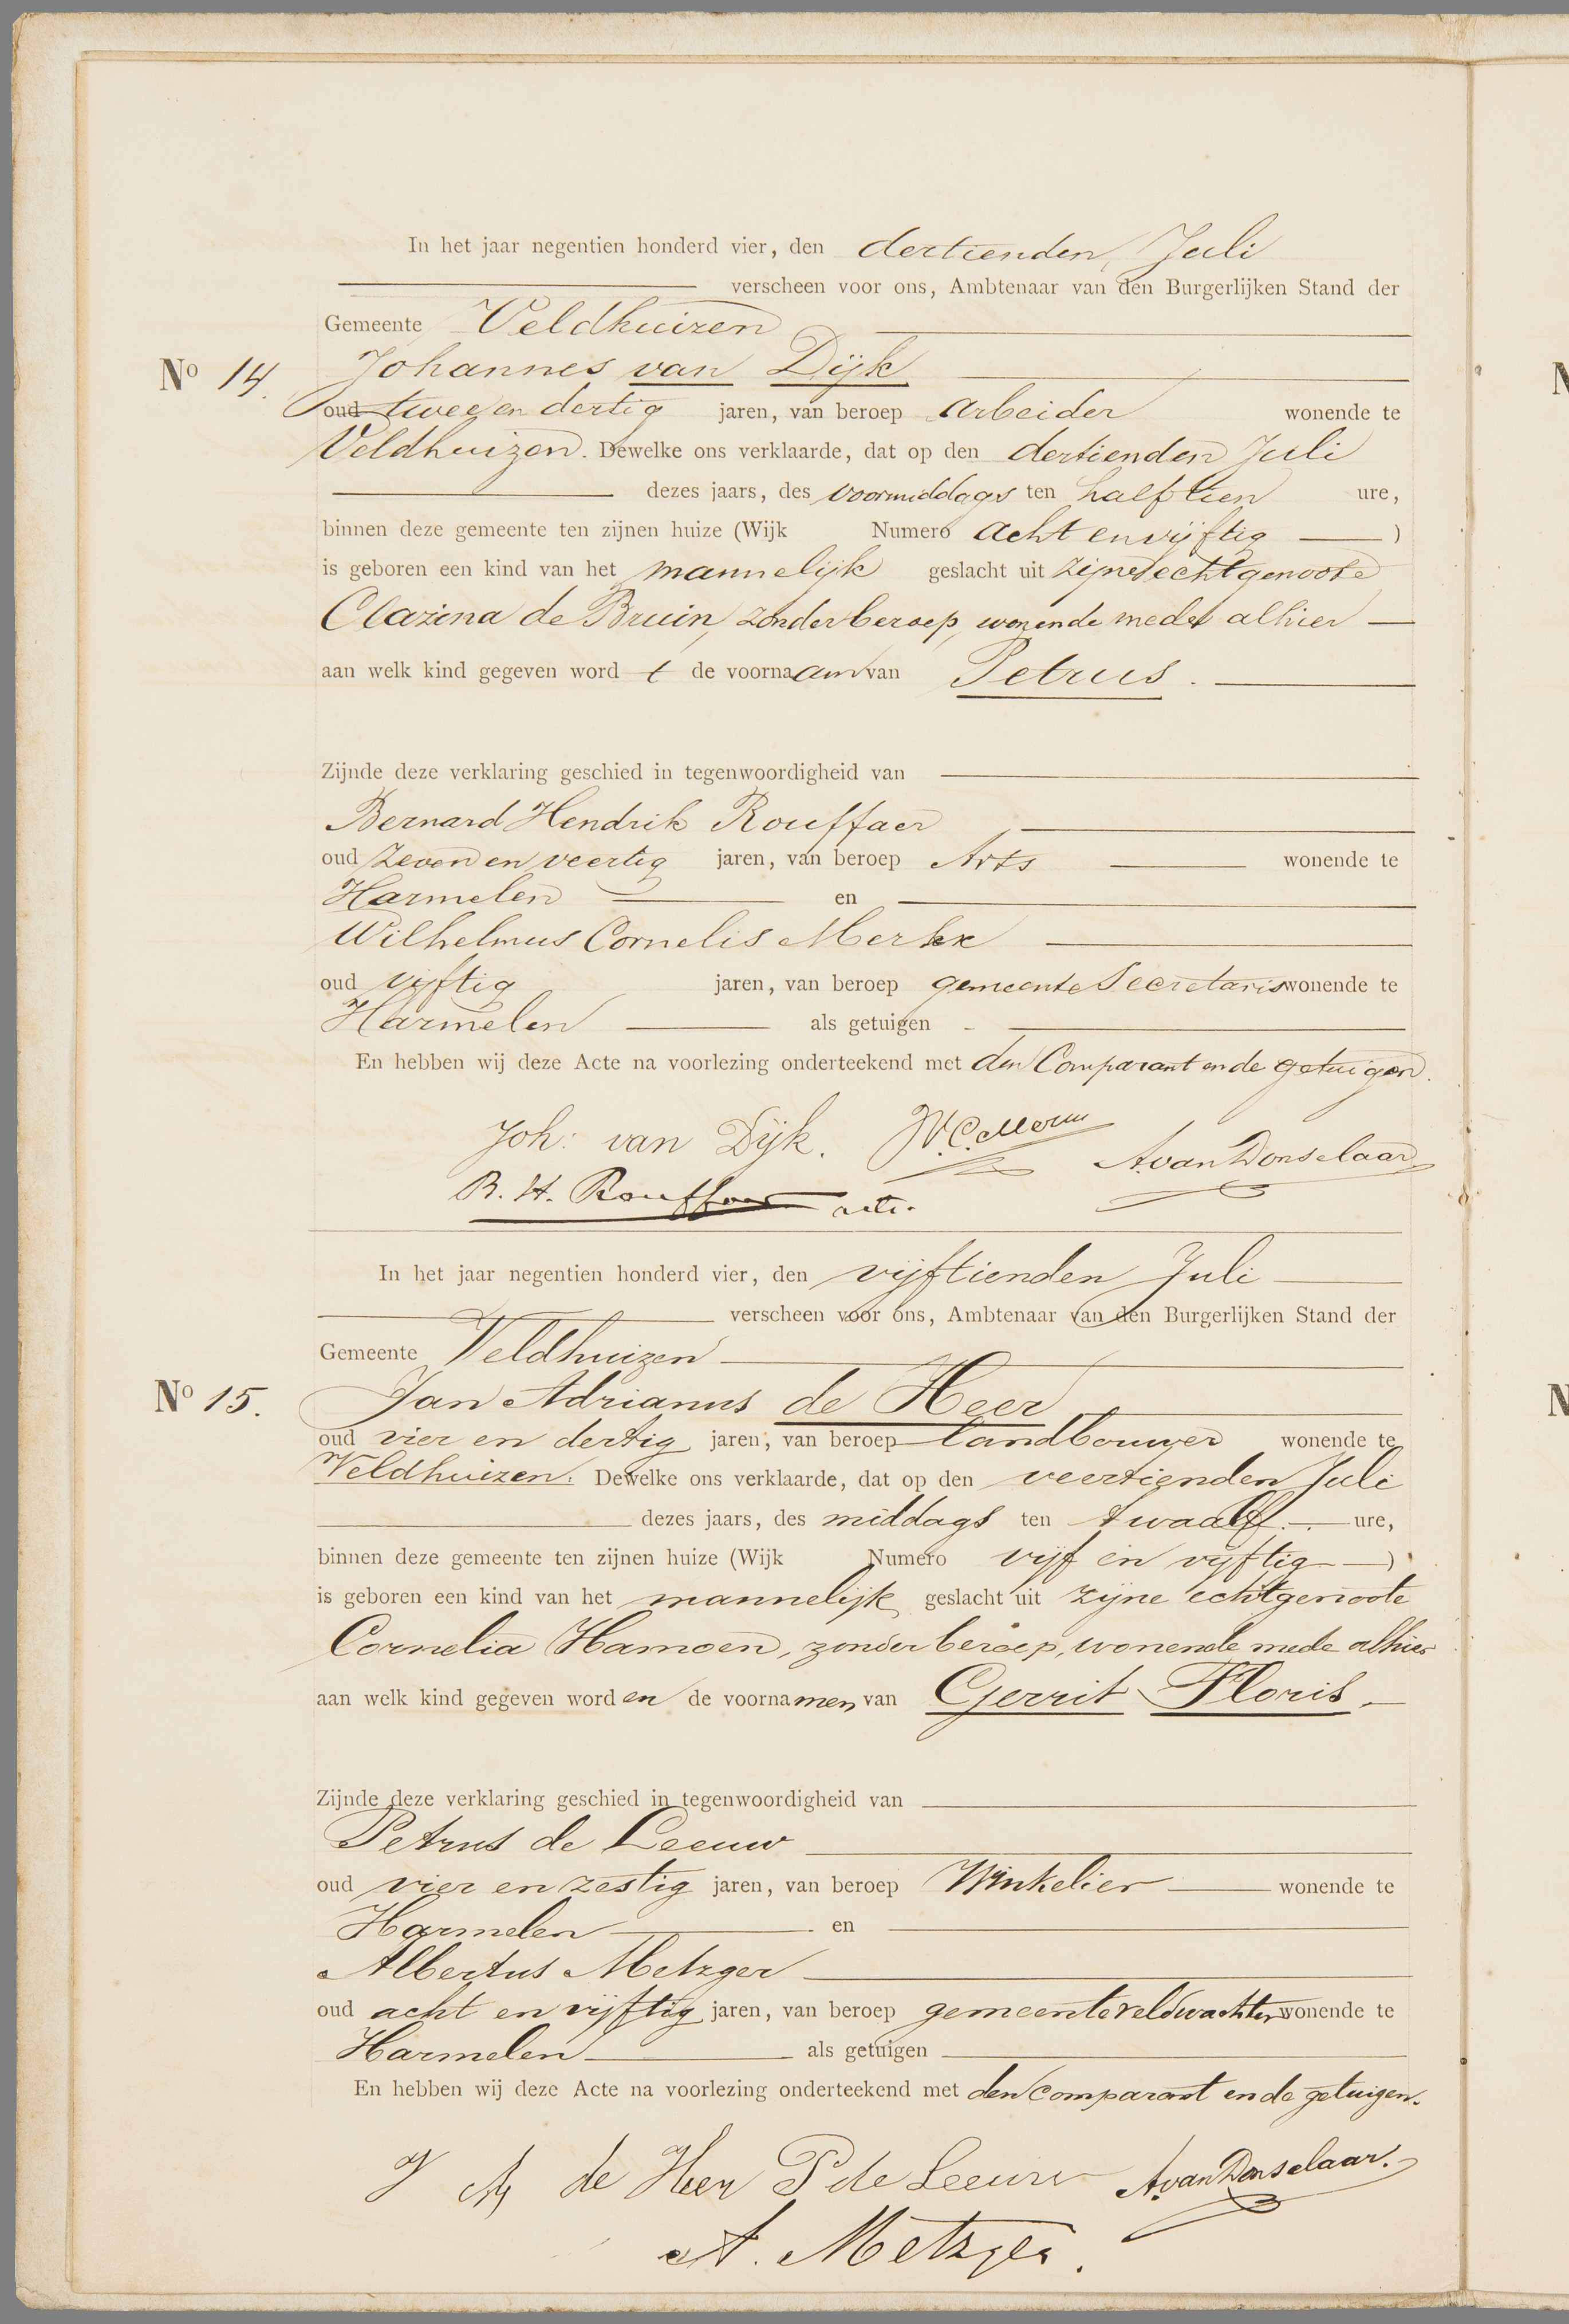 In het jaar negentien honderd vier, den dertienden Juli
verscheen voor ons, Ambtenaar van den Burgerlijken Stand der
Gemeente Veldhuizen
Johannes van Dijk
No 14.
oud twee en dertig jaren, van beroep arbeider wonende te
Veldhuizen. Dewelke ons verklaarde, dat op den dertienden Juli
dezes jaars, des voormiddags ten half tien ure,
binnen deze gemeente ten zijnen huize (Wijk Numero acht en vijftig )
is geboren een kind van het mannelijk geslacht uit zijne echtgenoote
Clazina de Bruin, zonder beroep, wonende mede alhier
aan welk kind gegeven word t de voornaam van Petrus.
Zijnde deze verklaring geschied in tegenwoordigheid van
Bernard Hendrik Rouffaer
oud zeven en veertig jaren, van beroep Arts wonende te
Harmelen en
Wilhelmus Cornelis Merkx
oud vijftig jaren, van beroep gemeente Secretaris wonende te
Harmelen als getuigen
En hebben wij deze Acte na voorlezing onderteekend met den Comparant en de getuigen.
Joh: van Dijk. W.C. A. van Donselaar
B. H. Rouffaer
In het jaar negentien honderd vier, den vijftienden Juli
verscheen voor ons, Ambtenaar van den Burgerlijken Stand der
Gemeente Veldhuizen
Jan Adrianus de Heer
No 15.
oud vier en dertig jaren, van beroep landbouwer wonende te
Veldhuizen. Dewelke ons verklaarde, dat op den veertienden Juli
dezes jaars, des middags ten twaalf ure,
binnen deze gemeente ten zijnen huize (Wijk Numero vijf en vijftig )
is geboren een kind van het mannelijk geslacht uit zijne echtgenoote
Cornelia Hamoen, zonder beroep, wonende mede alhier
aan welk kind gegeven worden de voornamen van Gerrit Floris.
Zijnde deze verklaring geschied in tegenwoordigheid van
Petrus de Leeuw
oud vier en zestig jaren, van beroep Winkelier wonende te
Harmelen en
Albertus Metzger
oud acht en vijftig jaren, van beroep gemeenteveldwachter wonende te
Harmelen als getuigen
En hebben wij deze Acte na voorlezing onderteekend met den comparant en de getuigen.
J A de Heer P de Leeuw A. van Donselaar.
A. Metzger.